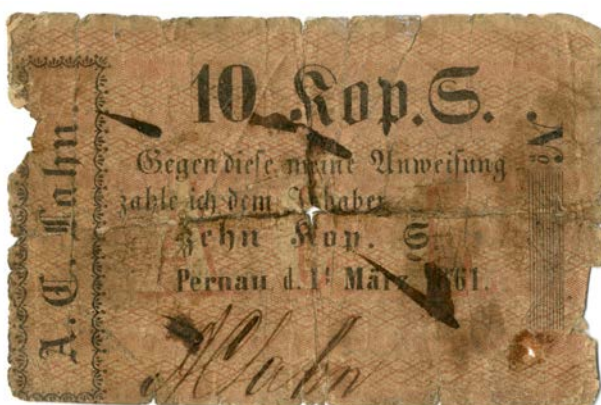 A. C. Lahn.
10 Kop. S.
No
Gegen diese meine Anweisung
zahle ich dem Inhaber
Zehn Kop. S.
Pernau d. 1t März 1861.
A C Lahn